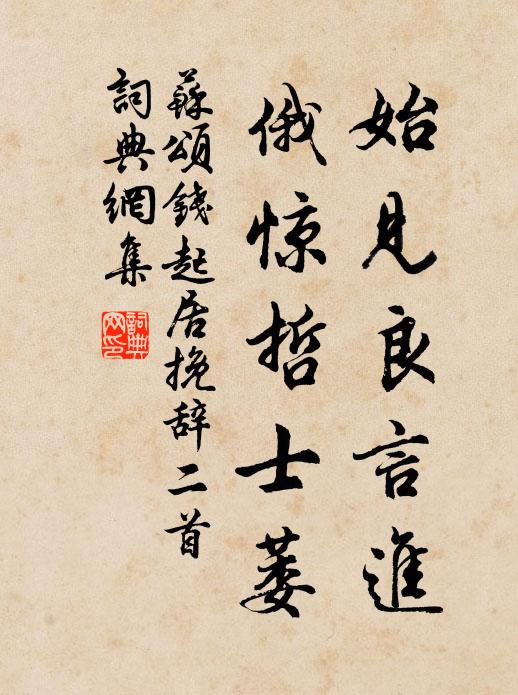 始见良言進
俄惊哲士萎
蘇頌錢起居挽辞二首
詞典網集
詞典網印